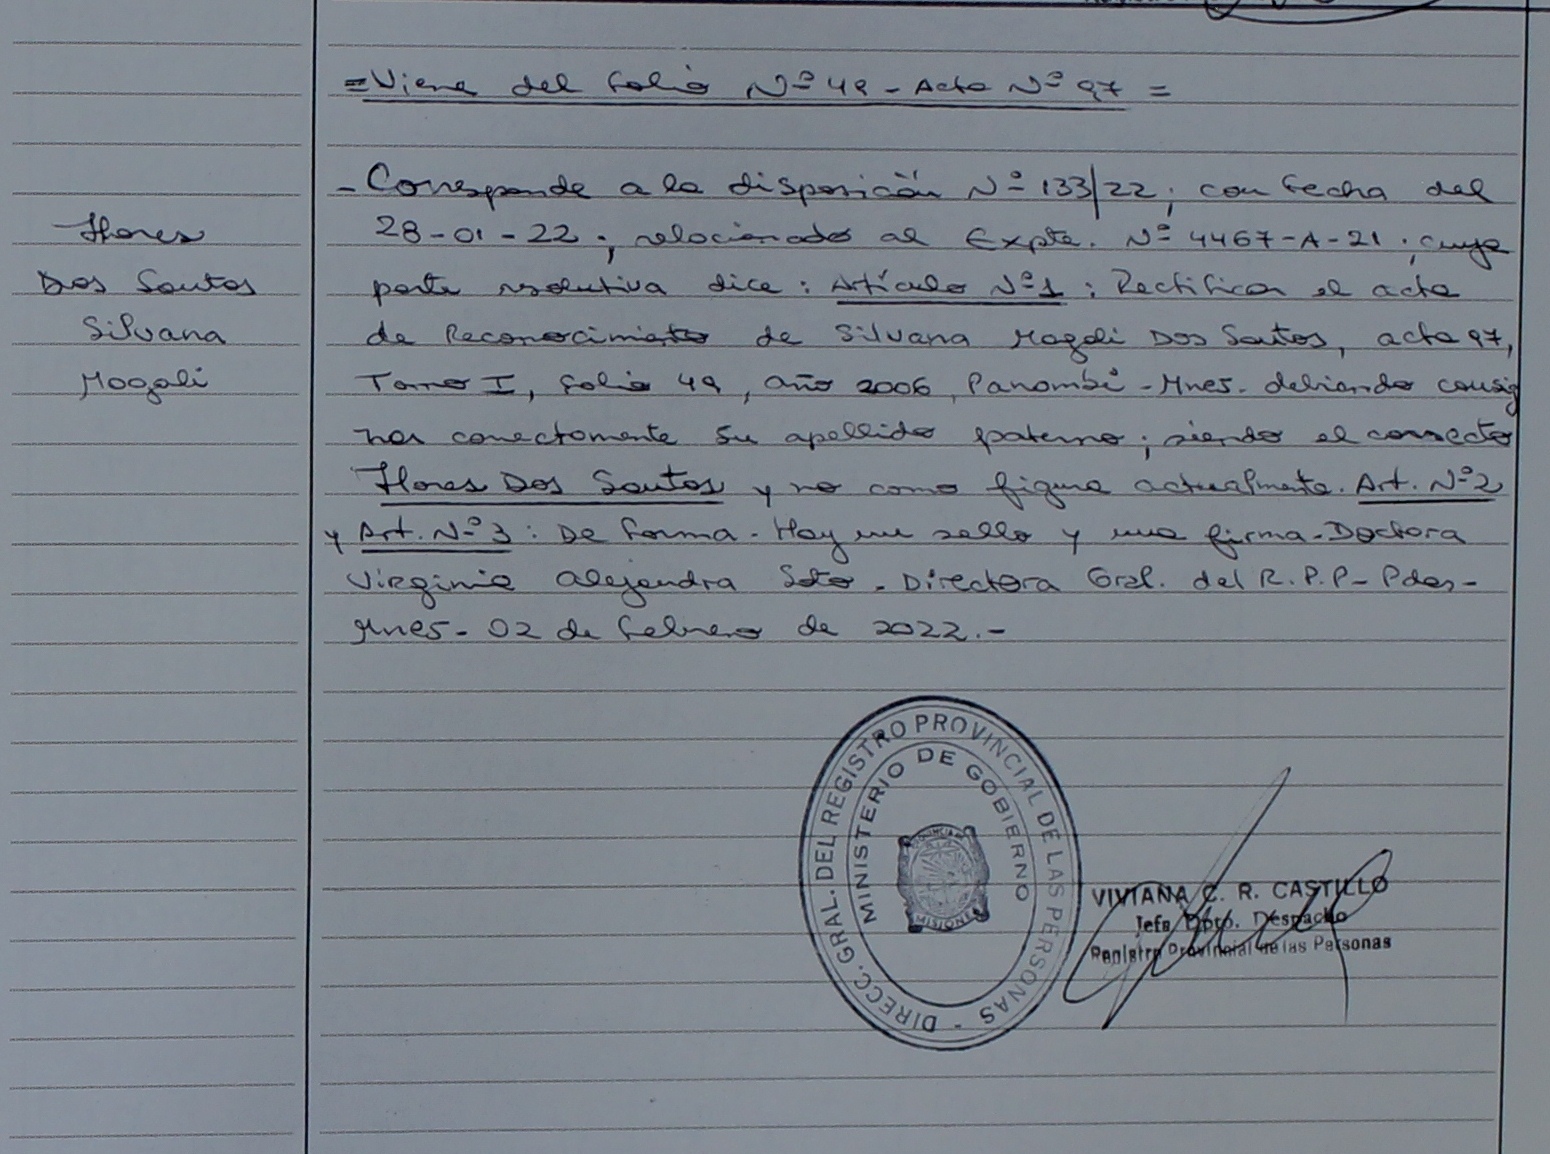 =Viene del folio Nº 49 - Acta Nº 97 =
- Corresponde a la disposición Nº 133/22; con fecha del
28-01-22; relacionado al Expte. Nº 4467-A-21; cuya
parte resolutiva dice: Artículo Nº1: Rectificar el acta
de Reconocimiento de Silvana Magali Dos Santos, acta 97,
Tomo I, folio 49, año 2006, Panambí - Mnes. debiendo consig
nar correctamente su apellido paterno; siendo el correcto
Flores Dos Santos y no como figura actualmente. Art. Nº2
y Art. Nº 3: De forma. Hay un sello y una firma. Doctora
Virginia Alejandra Soto - Directora Gral. del R.P.P - Pdas -
Mnes - 02 de febrero de 2022.-
Flores
Dos Santos
Silvana
Magali
DIRECC. GRAL. DEL REGISTRO PROVINCIAL DE LAS PERSONAS -
MINISTERIO DE GOBIERNO
MISIONES
VIVIANA C. R. CASTILLO
Jefa Dpto. Despacho
Registro Provincial de las Personas